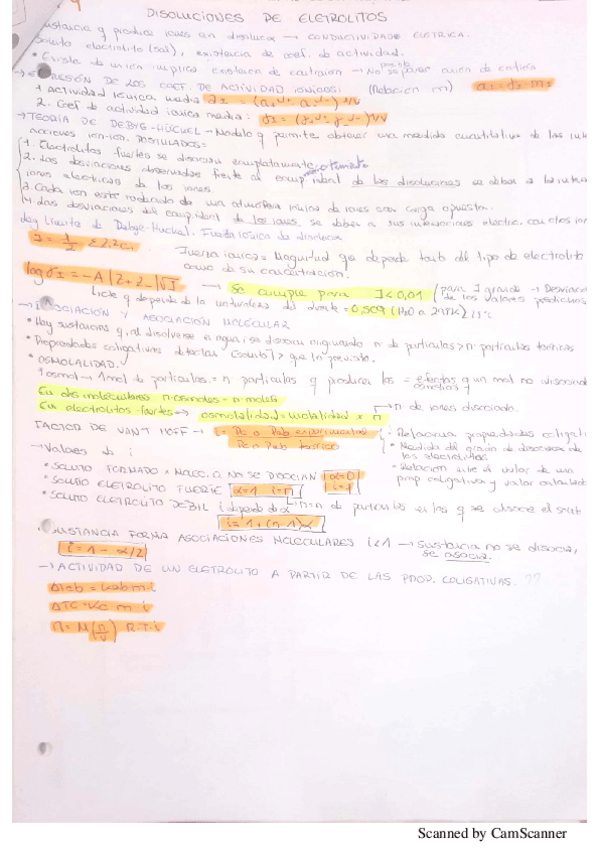 DISOLUCIONES DE ELETROLITOS
sustancia q produce iones en disoluco → CONDUCTIVIDADE ELÉTRICA.
Soluto electrolito (sal), existencia de coef. de actividad.
• Existe de union implica existencia de → No se
DE LOS COEF. DE ACTIVIDAD IÓNICOS: (Relación m)
1. Actividad iónica media
2. Coef. de actividad iónica media:
→ TEORÍA DE DEBYE-HÜCKEL → Modelo q permite obtener una medida cuantitativa de las
naciones ión-ión. POSTULADOS =
1. Electrolitos fuertes se disocian completamente
2. Las desviaciones observadas frente al comp. ideal de las disoluciones se deben a la
iones electricas de los iones
3. Cada ion este rodeado de una atmosfera iónica de iones con carga opuesta.
4 Las desviaciones del comp. ideal de los iones, se deben a sus interaciones electric. con otros ion
Ley Límite de Debye-Huckel. Fuerza iónica de disoluc
Fuerza iónica = Magnitud q depende tanto del tipo de electrolito
como de su concentración.
log γ± = -A |Z+ Z-| √I → Se cumple para I < 0,01
cte q depende de la naturaleza del = 0,509
DISOCIACIÓN Y ASOCIACIÓN MOLECULAR
• Hay sustancias q, al disolverse en agua, se disocian originando nº de particulas > nº particulas teoricas
• Propriedades coligativas detectan > que lo previsto.
• OSMOLALIDAD.
1 osmol → 1 mol de particulas. = nº particulas q produce los = efectos q un mol no disociado
En dis moleculares nº osmoles = nº moles
En electrolitos fuertes → osmolalidad = molalidad x n → nº de iones disociado.
FACTOR DE VANT HOFF → i = Pc o Pcb experimental
Pc o Pcb teorico
- Relaciona propiedades coligati
• Medida del grado de disociacion de
los electrolitos
• Relación entre el valor de una
prop coligativa y valor
→ Valores de i
• SOLUTO FORMADO x MOLEC. Q NO SE DISOCIAN α=0 i=1
• SOLUTO ELETROLITO FUERTE α=1 i=n
• SOLUTO ELETROLITO DEBIL i depende de α → n = nº de particulas en las q se disocie el soluto
i = 1 + (n-1) α
• SUSTANCIA FORMA ASOCIACIONES MOLECULARES i<1 → sustancia no se disocia,
se asocia.
i = 1 - α/2
→ ACTIVIDAD DE UN ELETROLITO A PARTIR DE LAS PROP. COLIGATIVAS. ??
ΔTeb = Keb m i
ΔTC = Kc m i
π = M (n/V) R·T·i
Scanned by CamScanner